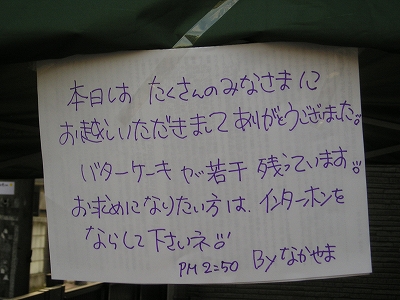 本日は たくさんのみなさまに
お越しいただきまして ありがとうございました。
バターケーキが若干 残っています。
お求めになりたい方は、インターホンを
ならして下さいネ。
PM 2:50 By なかやま